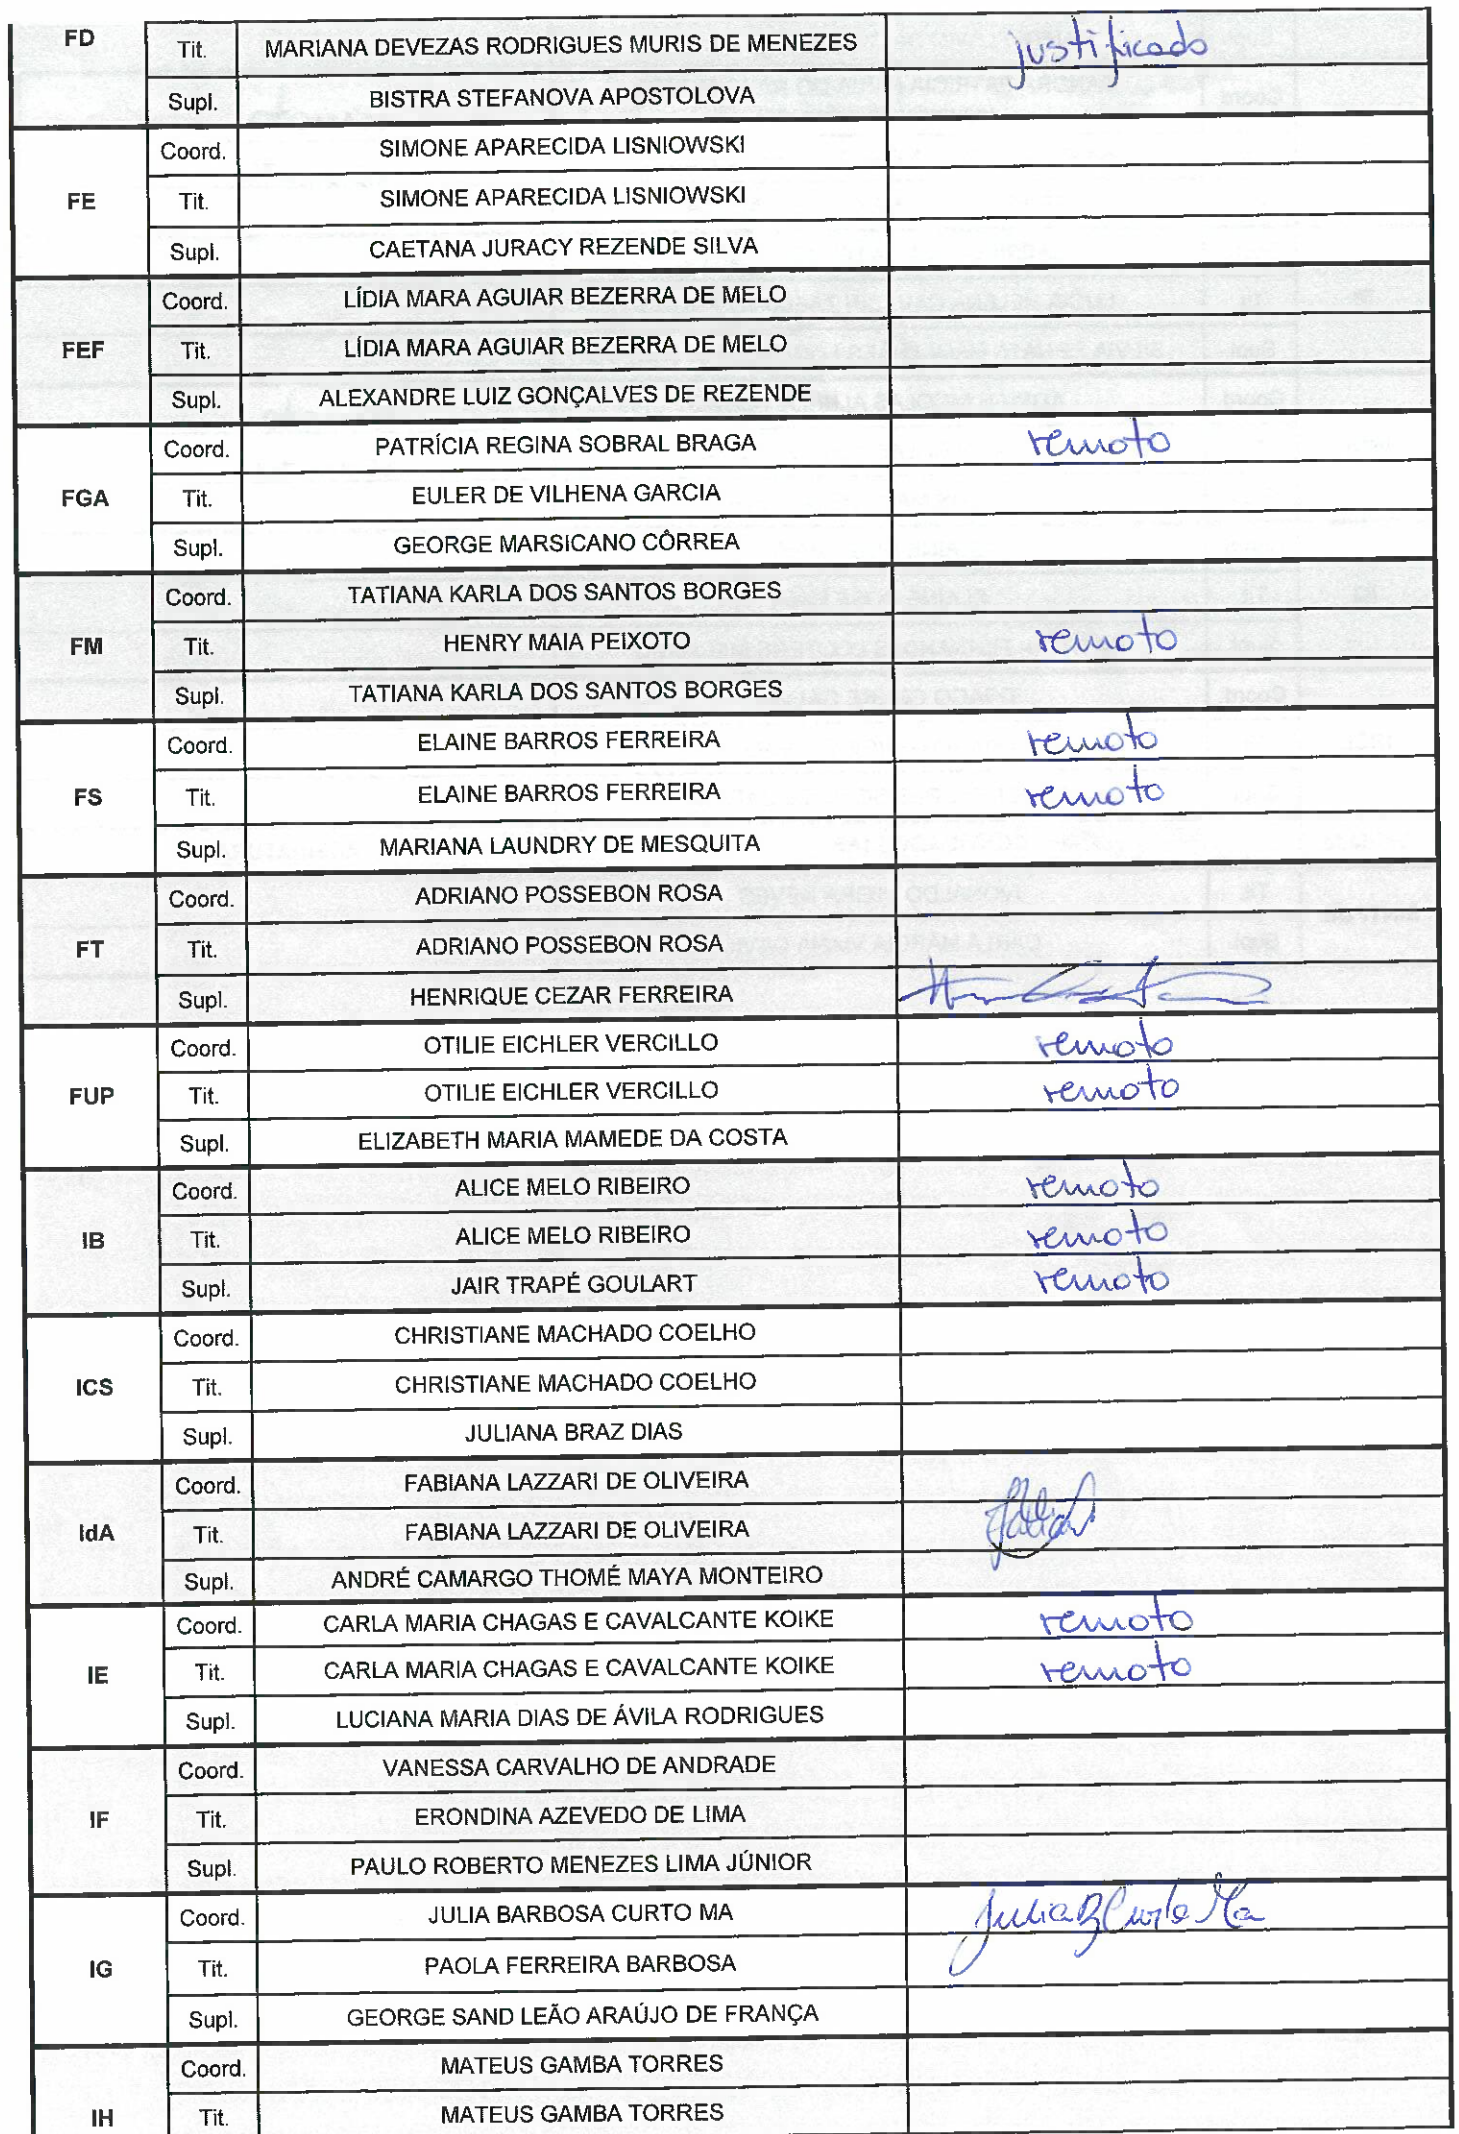 FD Tit. MARIANA DEVEZAS RODRIGUES MURIS DE MENEZES justificado
Supl. BISTRA STEFANOVA APOSTOLOVA
Coord. SIMONE APARECIDA LISNIOWSKI
FE Tit. SIMONE APARECIDA LISNIOWSKI
Supl. CAETANA JURACY REZENDE SILVA
Coord. LÍDIA MARA AGUIAR BEZERRA DE MELO
FEF Tit. LÍDIA MARA AGUIAR BEZERRA DE MELO
Supl. ALEXANDRE LUIZ GONÇALVES DE REZENDE
Coord. PATRÍCIA REGINA SOBRAL BRAGA remoto
FGA Tit. EULER DE VILHENA GARCIA
Supl. GEORGE MARSICANO CÔRREA
Coord. TATIANA KARLA DOS SANTOS BORGES
FM Tit. HENRY MAIA PEIXOTO remoto
Supl. TATIANA KARLA DOS SANTOS BORGES
Coord. ELAINE BARROS FERREIRA remoto
FS Tit. ELAINE BARROS FERREIRA remoto
Supl. MARIANA LAUNDRY DE MESQUITA
Coord. ADRIANO POSSEBON ROSA
FT Tit. ADRIANO POSSEBON ROSA
Supl. HENRIQUE CEZAR FERREIRA
Coord. OTILIE EICHLER VERCILLO remoto
FUP Tit. OTILIE EICHLER VERCILLO remoto
Supl. ELIZABETH MARIA MAMEDE DA COSTA
Coord. ALICE MELO RIBEIRO remoto
IB Tit. ALICE MELO RIBEIRO remoto
Supl. JAIR TRAPÉ GOULART remoto
Coord. CHRISTIANE MACHADO COELHO
ICS Tit. CHRISTIANE MACHADO COELHO
Supl. JULIANA BRAZ DIAS
Coord. FABIANA LAZZARI DE OLIVEIRA
IdA Tit. FABIANA LAZZARI DE OLIVEIRA
Supl. ANDRÉ CAMARGO THOMÉ MAYA MONTEIRO
Coord. CARLA MARIA CHAGAS E CAVALCANTE KOIKE remoto
IE Tit. CARLA MARIA CHAGAS E CAVALCANTE KOIKE remoto
Supl. LUCIANA MARIA DIAS DE ÁVILA RODRIGUES
Coord. VANESSA CARVALHO DE ANDRADE
IF Tit. ERONDINA AZEVEDO DE LIMA
Supl. PAULO ROBERTO MENEZES LIMA JÚNIOR
Coord. JULIA BARBOSA CURTO MA Julia B Curto Ma
IG Tit. PAOLA FERREIRA BARBOSA
Supl. GEORGE SAND LEÃO ARAÚJO DE FRANÇA
Coord. MATEUS GAMBA TORRES
IH Tit. MATEUS GAMBA TORRES